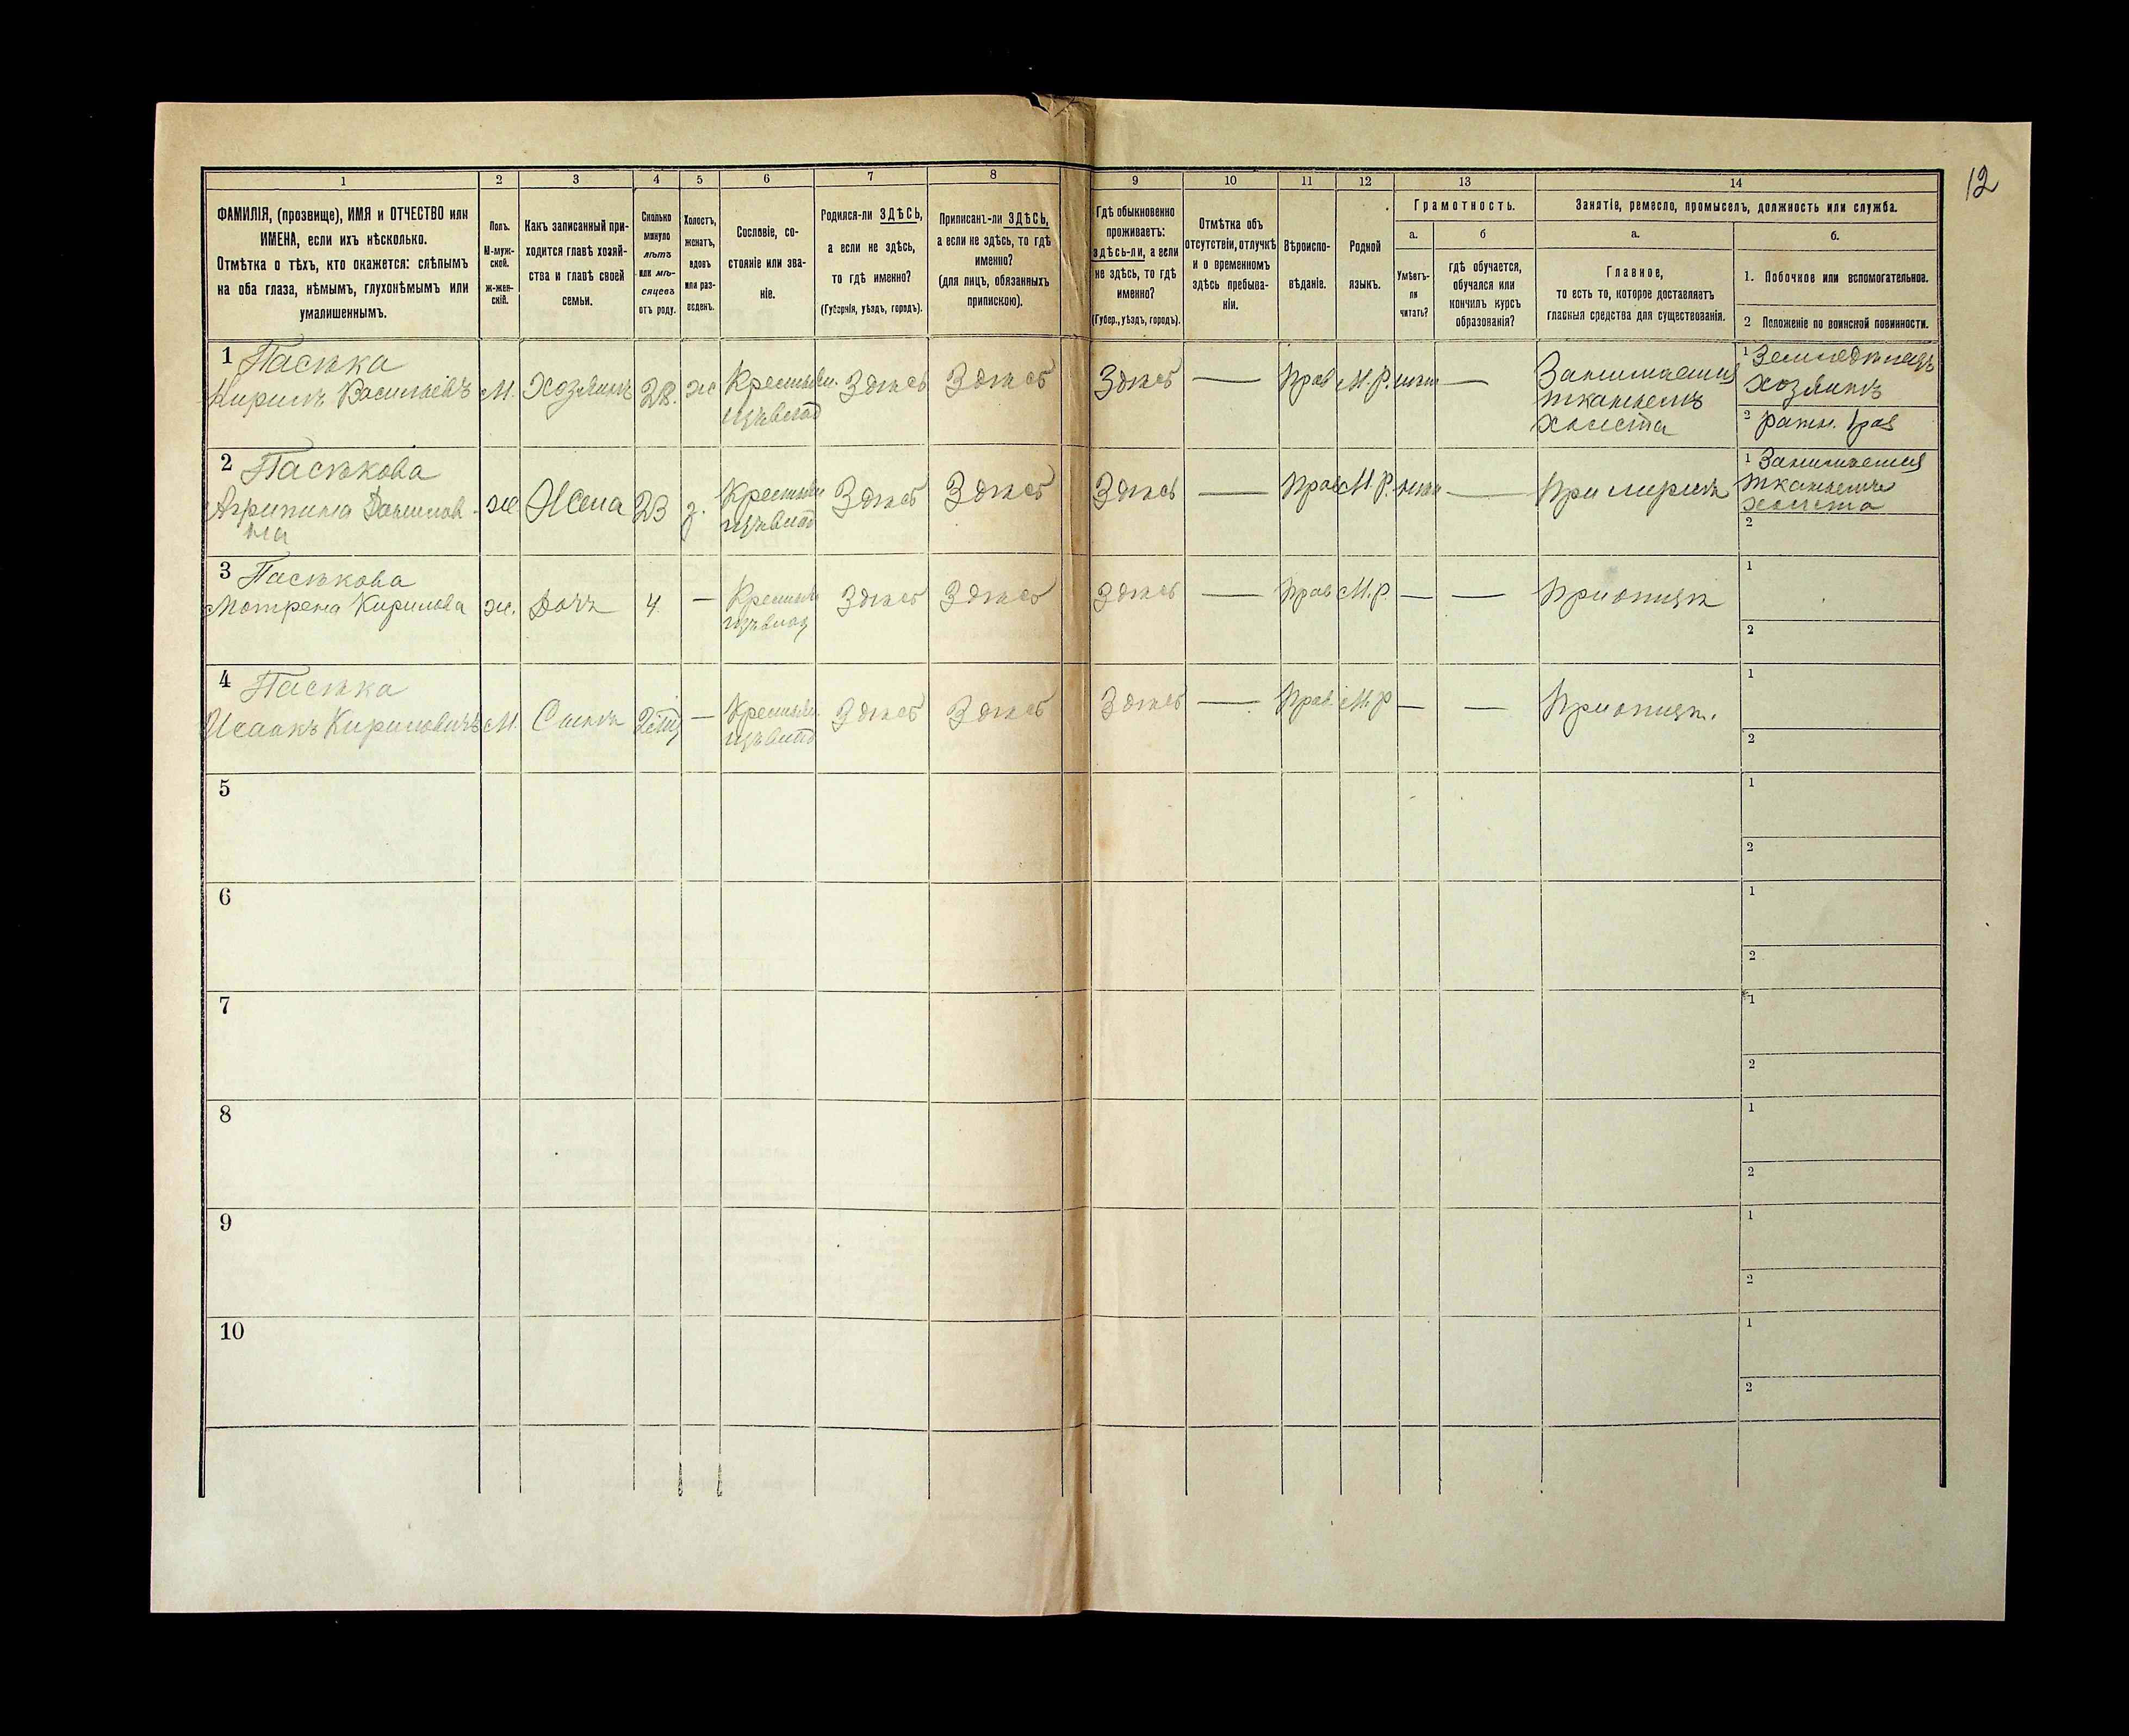 12
1 2 3 4 5 6 7 8 9 10 11 12 13 14
ФАМИЛІЯ, (прозвище), ИМЯ и ОТЧЕСТВО или
ИМЕНА, если ихъ нѣсколько.
Отмѣтка о тѣхъ, кто окажется: слѣпымъ
на оба глаза, нѣмымъ, глухонѣмымъ или
умалишеннымъ.
Полъ.
М-муж-
ской.
ж-жен-
скій.
Какъ записанный при-
ходится главѣ хозяй-
ства и главѣ своей
семьи.
Сколько
минуло
лѣтъ
или мѣ-
сяцевъ
отъ роду.
Холостъ,
женатъ,
вдовъ
или раз-
веденъ.
Сословіе, со-
стояніе или зва-
ніе.
Родился-ли ЗДѢСЬ,
а если не здѣсь,
то гдѣ именно?
(Губернія, уѣздъ, городъ).
Приписанъ-ли ЗДѢСЬ,
а если не здѣсь, то гдѣ
именно?
(для лицъ, обязанныхъ
припискою).
Гдѣ обыкновенно
проживаетъ:
здѣсь-ли, а если
не здѣсь, то гдѣ
именно?
(Губер., уѣздъ, городъ).
Отмѣтка объ
отсутствіи, отлучкѣ
и о временномъ
здѣсь пребыва-
ніи.
Вѣроиспо-
вѣданіе.
Родной
языкъ.
Грамотность.
а.
Умѣетъ-
ли
читать?
б
гдѣ обучается,
обучался или
кончилъ курсъ
образованія?
Занятіе, ремесло, промыселъ, должность или служба.
а.
Главное,
то есть то, которое доставляетъ
главныя средства для существованія.
б.
1. Побочное или вспомогательное.
2 Положеніе по воинской повинности.
1 Пасѣка
Кирилъ Васильевъ М. Хозяинъ 28. ж Здѣсь Здѣсь Здѣсь — Прав М.Р. —
Занимается
тканьемъ
холста
1 Земледѣлецъ
хозяинъ
2 ратн. 1 раз
2 Пасѣкова
Агрипина Данилов-
на
ж Жена 23 Здѣсь Здѣсь Здѣсь — Прав М.Р. —
При мужѣ
1 Занимается
тканьемъ
холста
2
3 Пасѣкова
Мотрена Кирилова ж. Дочь 4 — Здѣсь Здѣсь Здѣсь — Прав М.р. — —
При отцѣ
1
2
4 Пасѣка
Исаакъ Кириловичъ М. Сынъ — Здѣсь Здѣсь Здѣсь — Прав. М.р — —
При отцѣ.
1
2
5
1
2
6
1
2
7
1
2
8
1
2
9
1
2
10
1
2